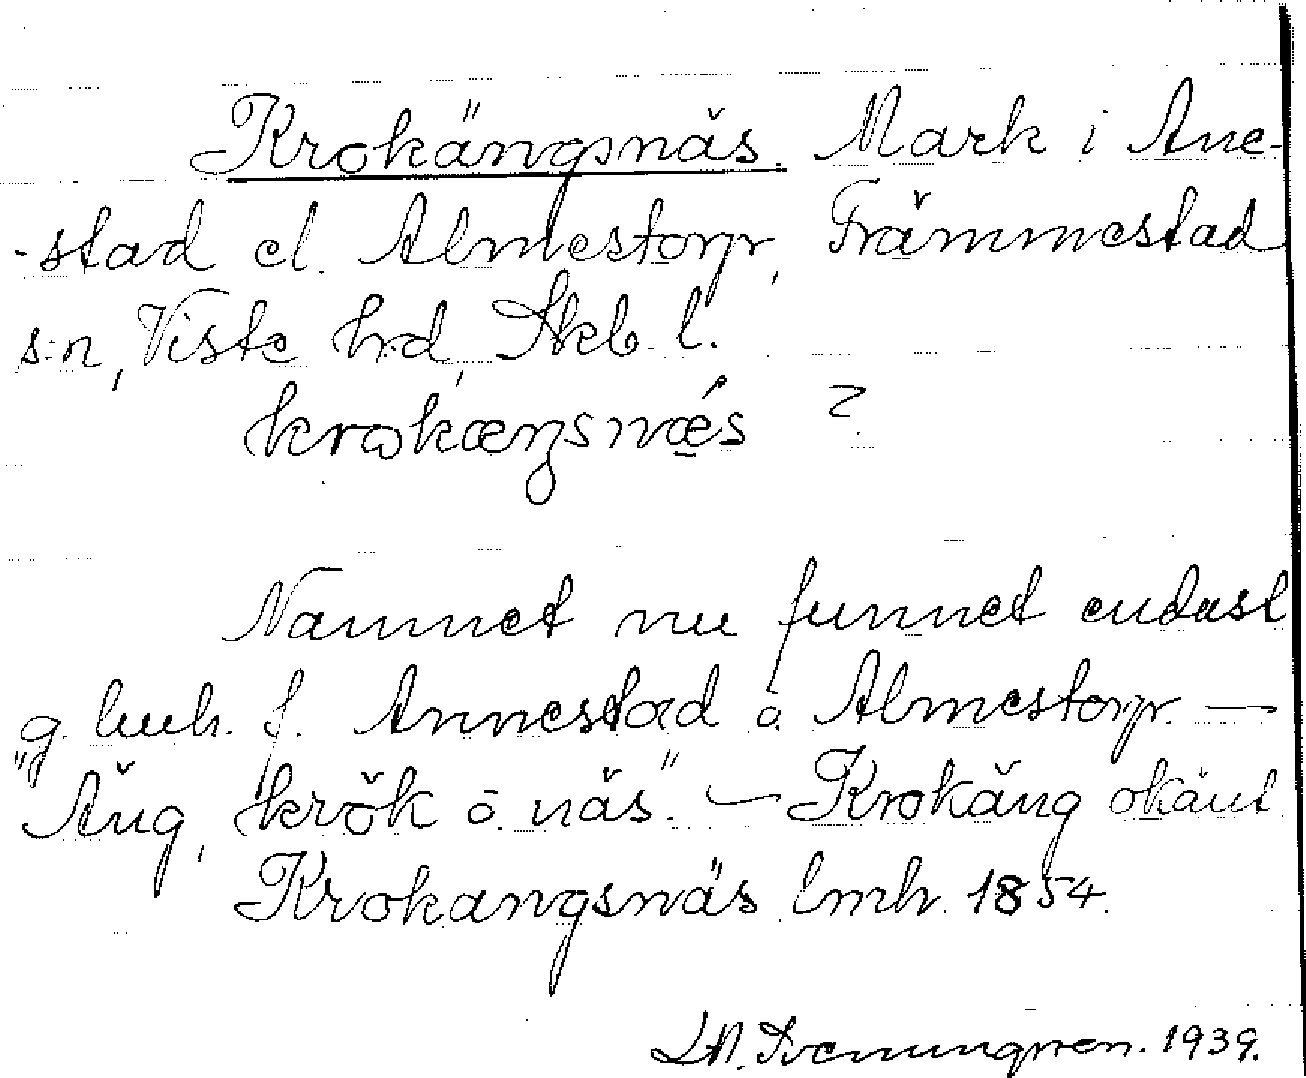 Krokängsnäs. Mark i Ane-
-stad el. Almestorp, Främmestad
s:n, Viste hrd, Skb. l.
krokæŋsnæ̀s ?
Namnet nu funnet endast
g. lmh. f. Annestad o. Almestorp. —
"Äng, krök o. näs". — Krokäng okänt
Krokangsnäs lmh. 1854.
1939.